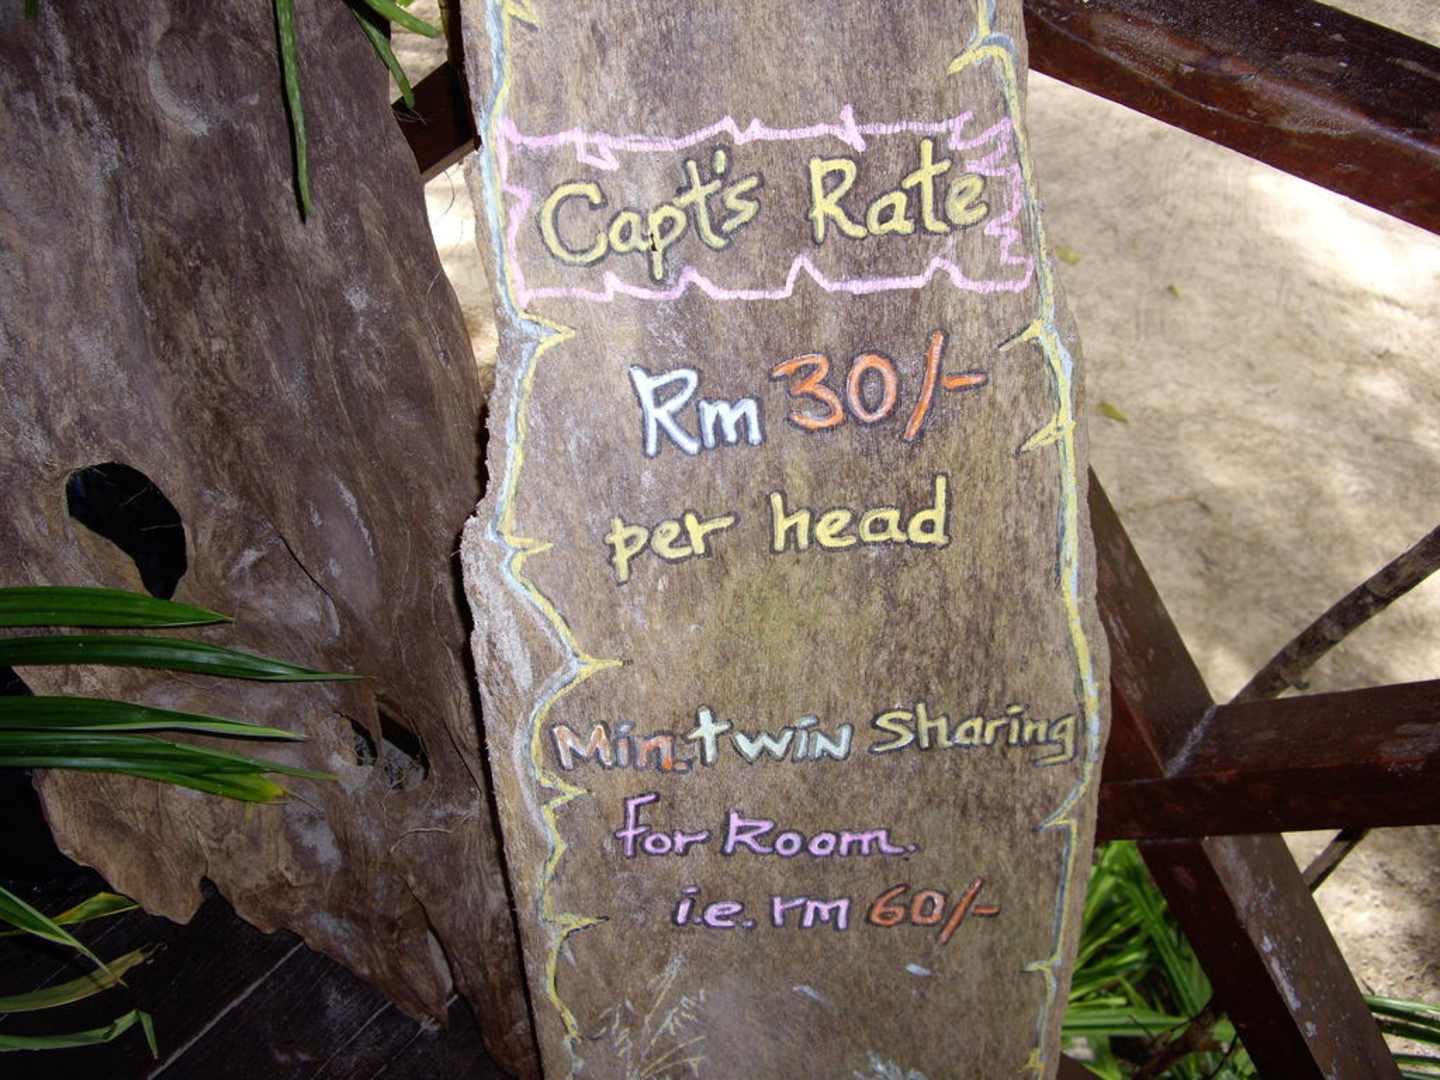 Capt's Rate
Rm 30/-
per head
Min. twin Sharing
for Room.
i.e. rm 60/-